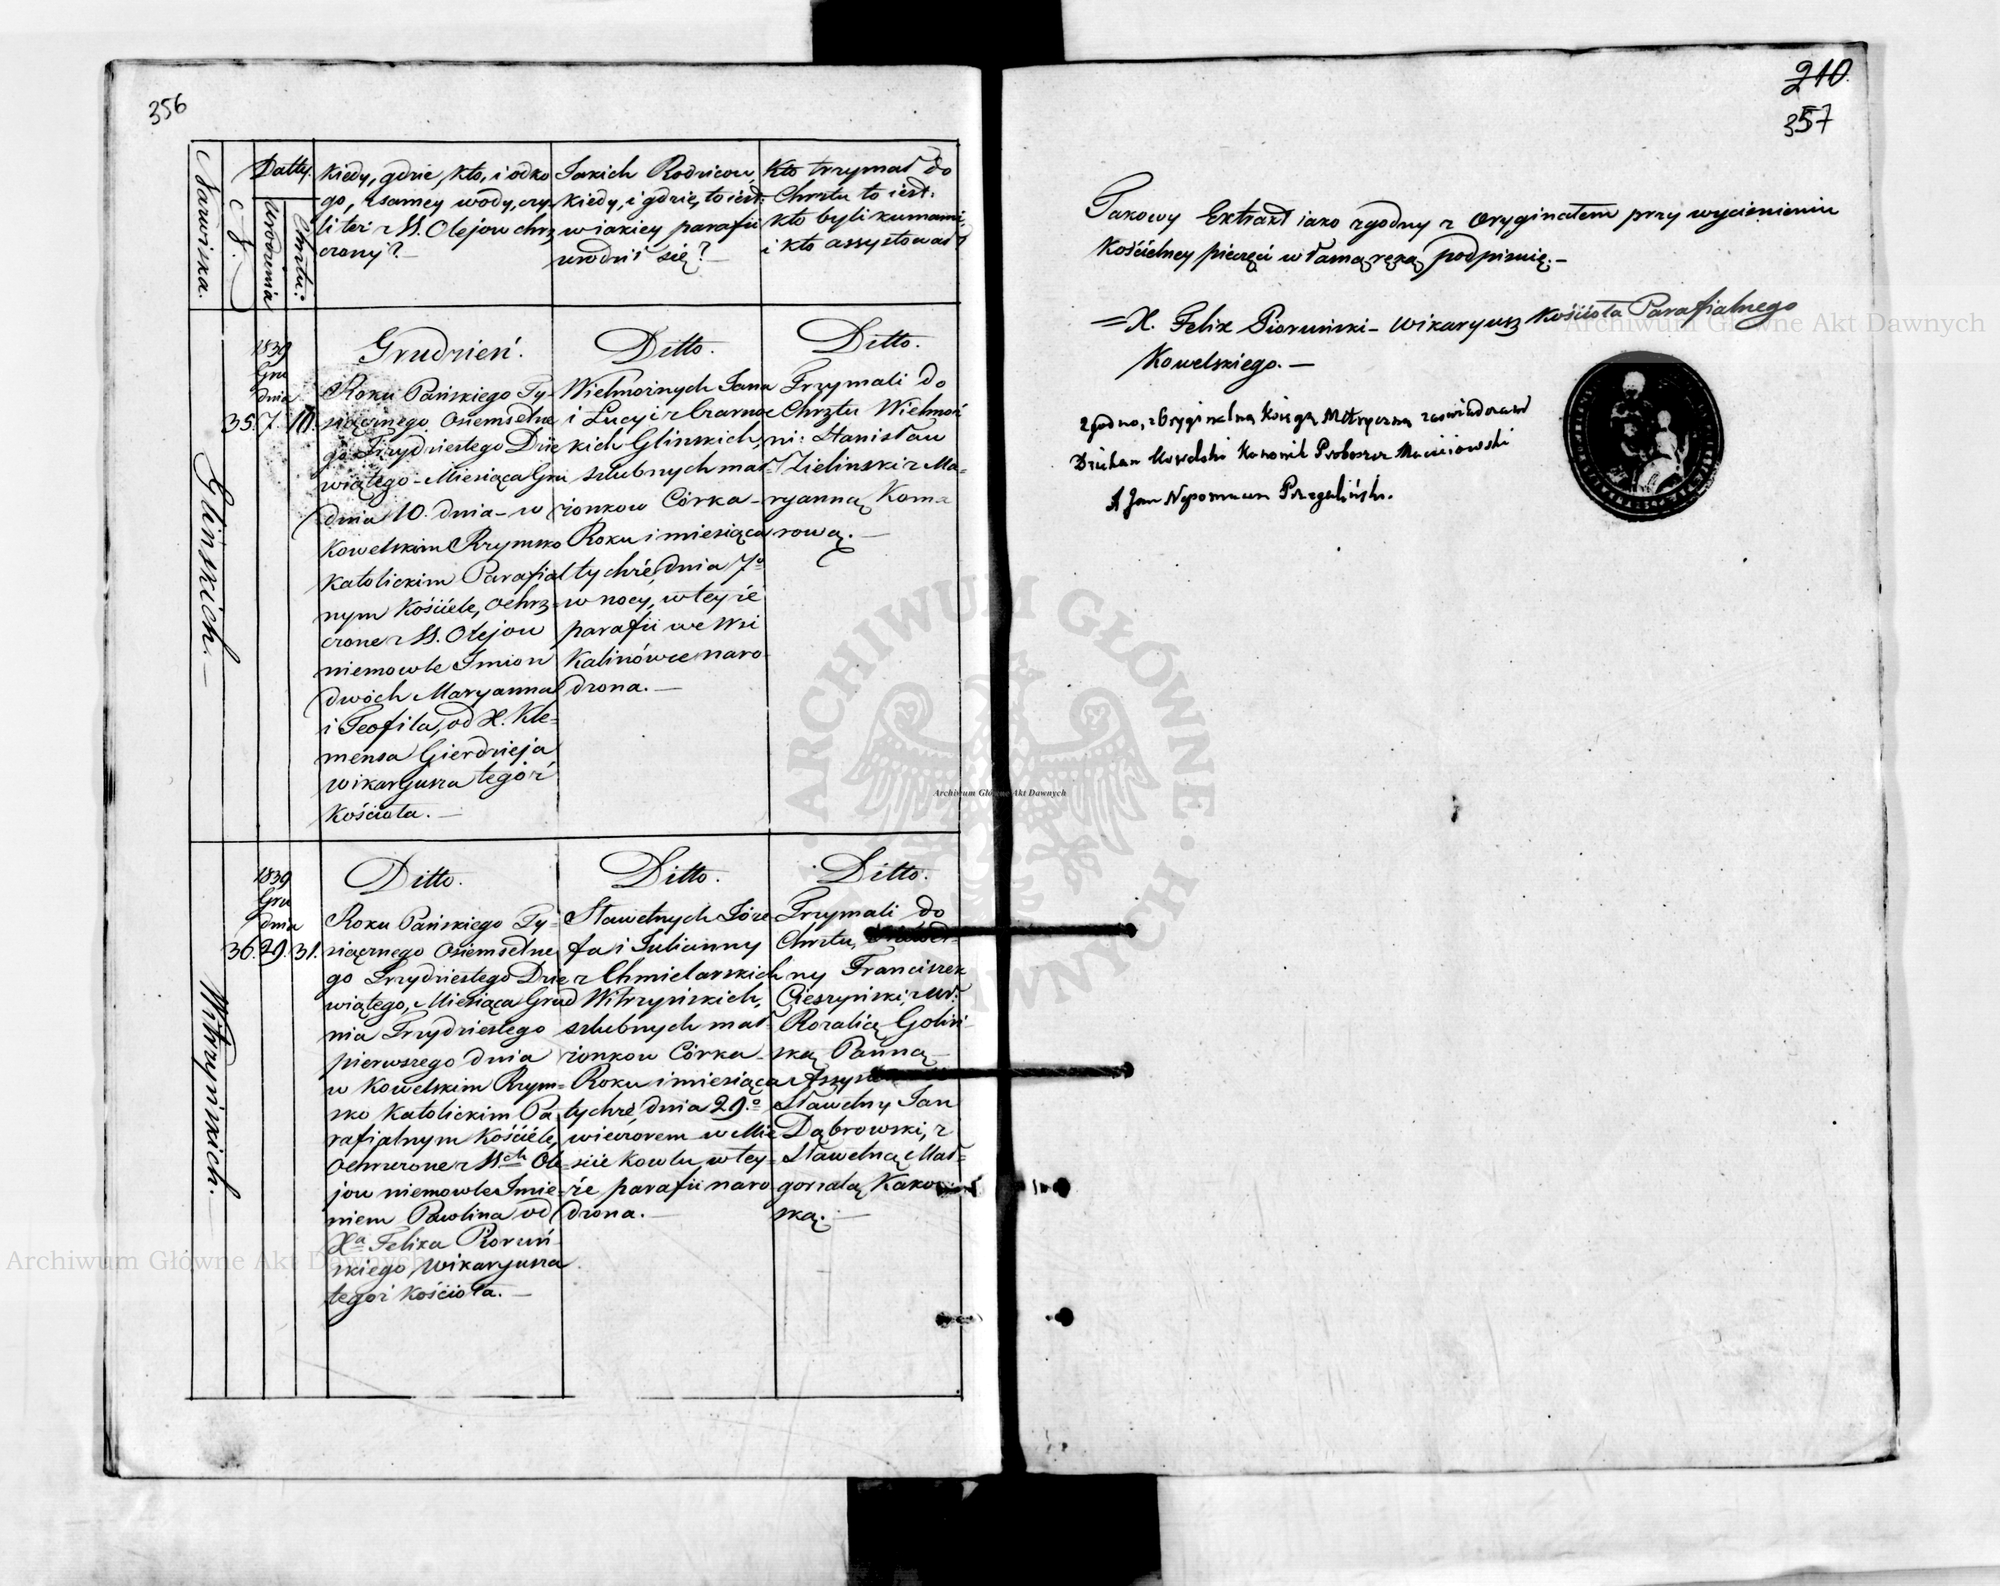 356
Nazwiska.
N.
Datty.
Urodzenia
Chrztu:
Kiedy, gdzie, kto, i odko
go, z samey wody, czy
li też z SS. Olejow chrz
czony?
Jakich Rodzicow,
kiedy, i gdzie, to iest:
w iakiey parafii
urodził się?
Kto trzymał do
Chrztu to iest:
kto byli kumami,
i kto assystował
Glinskich.
35.
1839
Gru
dnia
7.
10.
Grudzień.
Roku Pańskiego Ty-
siącznego Osiemsetne
go Trzydziestego Dzie
wiątego Miesiąca Gru
dnia 10. dnia w
Kowelskim Rzymsko
Katolickim Parafial
nym Kościele, ochrz
czone z SS. Olejow
niemowle Imion
dwóch Maryanna
i Teofila, od X. Kle-
mensa Gierdzieja
Wikaryusza tegoż
Kościoła.
Ditto.
Wielmożnych Jana
i Lucyi z Czarnoc
kich Glinskich,
szlubnych mał-
żonkow Córka
Roku i miesiąca
tychże, dnia 7º
w nocy, w tey że
parafii we Wsi
Kalinówce naro-
dzona.
Ditto.
Trzymali do
Chrztu Wielmoż
ni: Stanisław
Zielinski z Ma-
ryanną Koma
rową.
Witrzyńskich.
36.
1839
Gru
dnia
29.
31.
Ditto.
Roku Pańskiego Ty-
siącznego Osiemsetne
go Trzydziestego Dzie
wiątego, Miesiąca Grud
nia Trzydziestego
pierwszego dnia
w Kowelskim Rzym-
sko Katolickim Pa
rafialnym Kościele,
Ochrzczone z SSch Ole
jow niemowle Imie-
niem Pawlina od
Xa Felixa Pioruń
skiego Wikaryusza
tegoż Kościoła.
Ditto.
Sławetnych Józe
fa i Julianny
z Chmielarskich
Witrzyńskich,
szlubnych mał-
żonkow Córka
Roku i miesiąca
tychże, dnia 29.º
wieczorem w Mie
ście Kowlu, w tey-
że parafii naro
dzona.
Ditto.
Trzymali do
Chrztu,
ny Franciszek
Cieszyński, z Ur:
Rozalią Goliń
ską Panną
Sławetny Jan
Dąbrowski, z
Sławetną Mał-
gorzatą
ską.
210.
357
Takowy Extrakt iako zgodny z Oryginałem przy wycisnieniu
Kościelney pieczęci własną ręką podpisuię.
X. Felix Pioruński Wikaryusz Kościoła Parafialnego
Kowelskiego.
Zgodno, z Oryginalną Księgą Metryczną zaswiadczam
Dziekan Kowelski Kanonik Proboszcz Maciiowski
X Jan Nepomucen
Archiwum Główne Akt Dawnych
Archiwum Główne Akt Dawnych
Archiwum Główne Akt Dawnych
ARCHIWUM GŁÓWNE AKT DAWNYCH